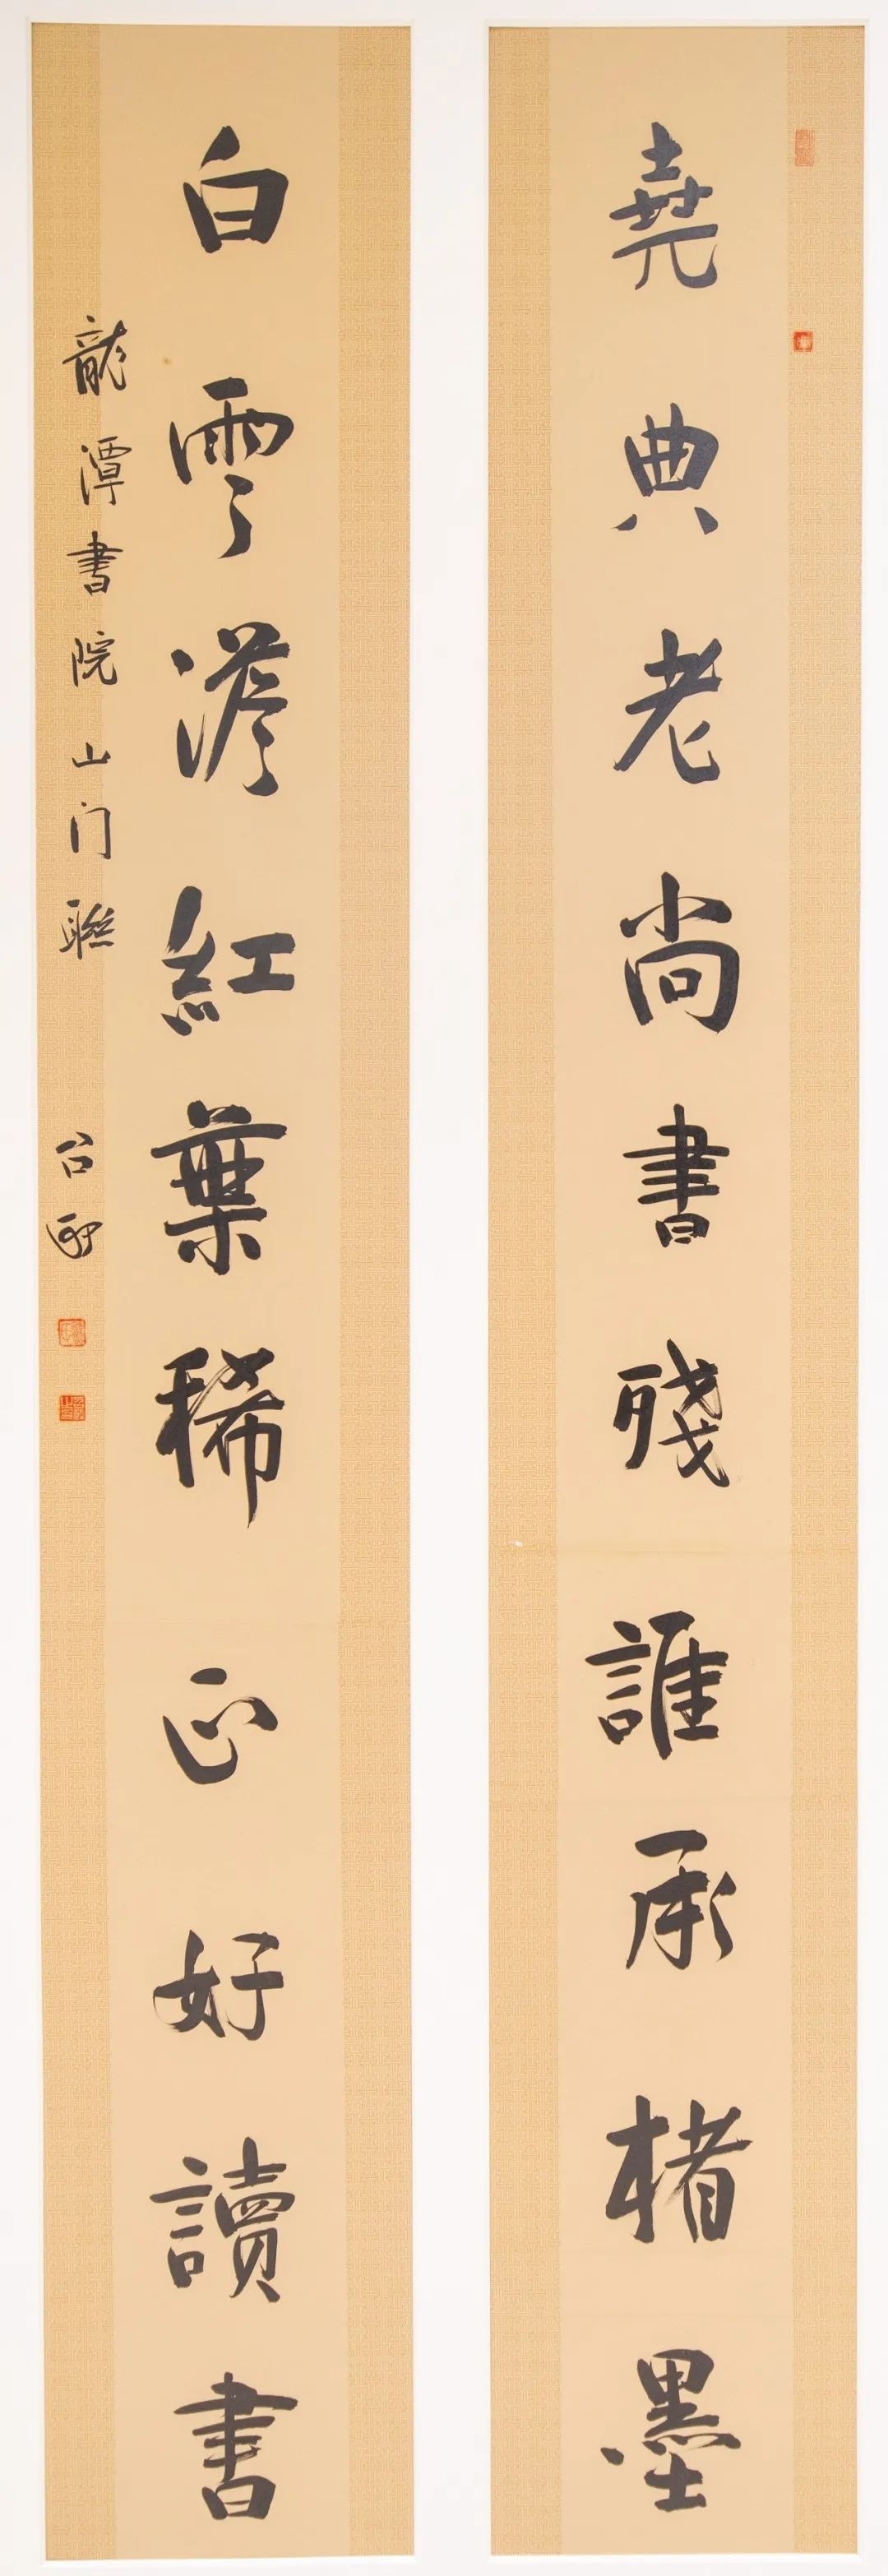 堯典老尚書殘誰承楮墨
白雲澹紅葉稀正好讀書
龍潭書院山门聯